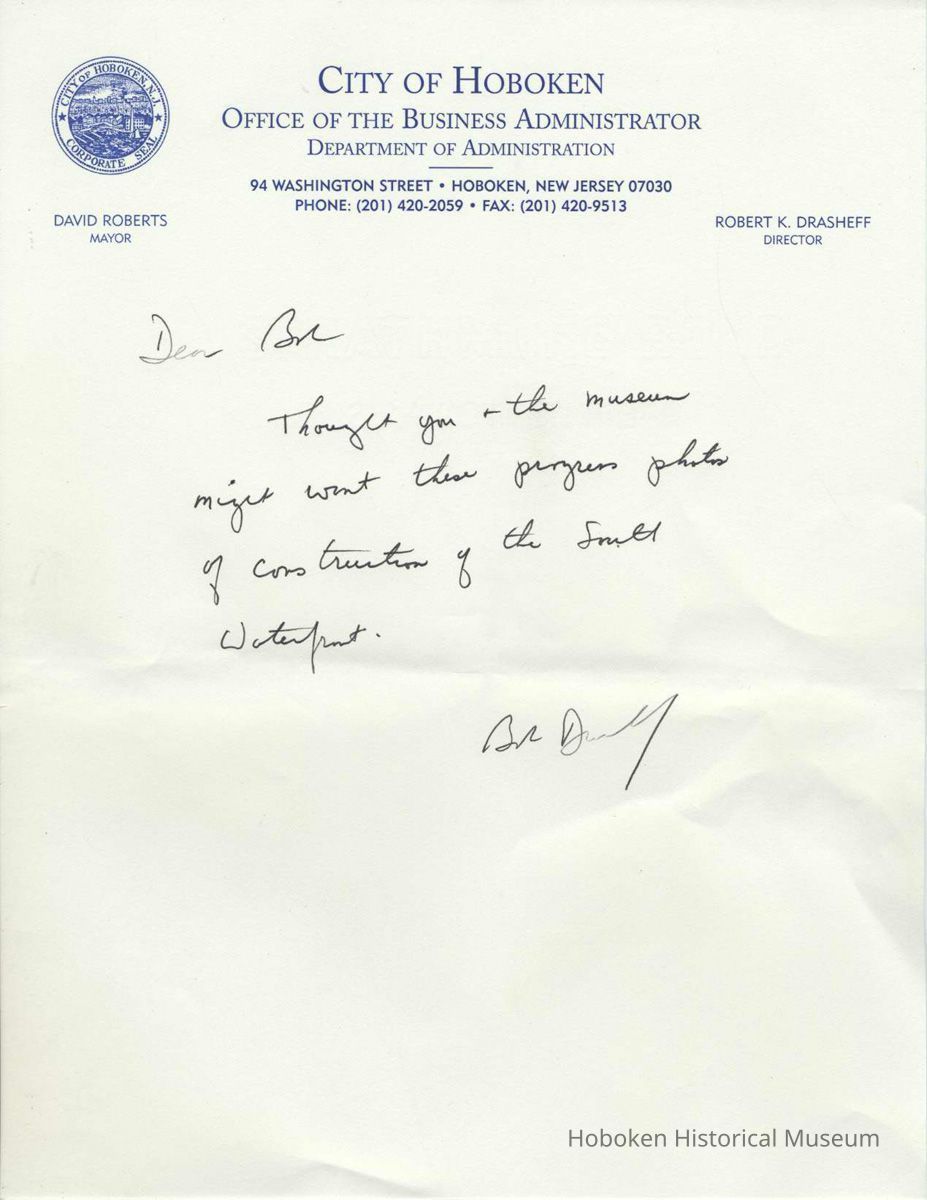 CITY OF HOBOKEN, N.J.
CORPORATE SEAL
CITY OF HOBOKEN
OFFICE OF THE BUSINESS ADMINISTRATOR
DEPARTMENT OF ADMINISTRATION
94 WASHINGTON STREET • HOBOKEN, NEW JERSEY 07030
PHONE: (201) 420-2059 • FAX: (201) 420-9513
DAVID ROBERTS
MAYOR
ROBERT K. DRASHEFF
DIRECTOR
Dear Bob
Thought you + the museum
might want these progress photos
of construction of the South
Waterfront.
Bob Drasheff
Hoboken Historical Museum